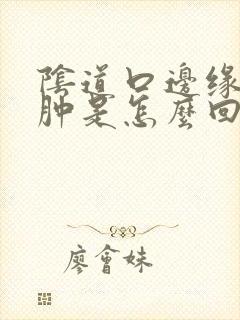 陰道口邊緣
肿是怎麽回
廖會妹